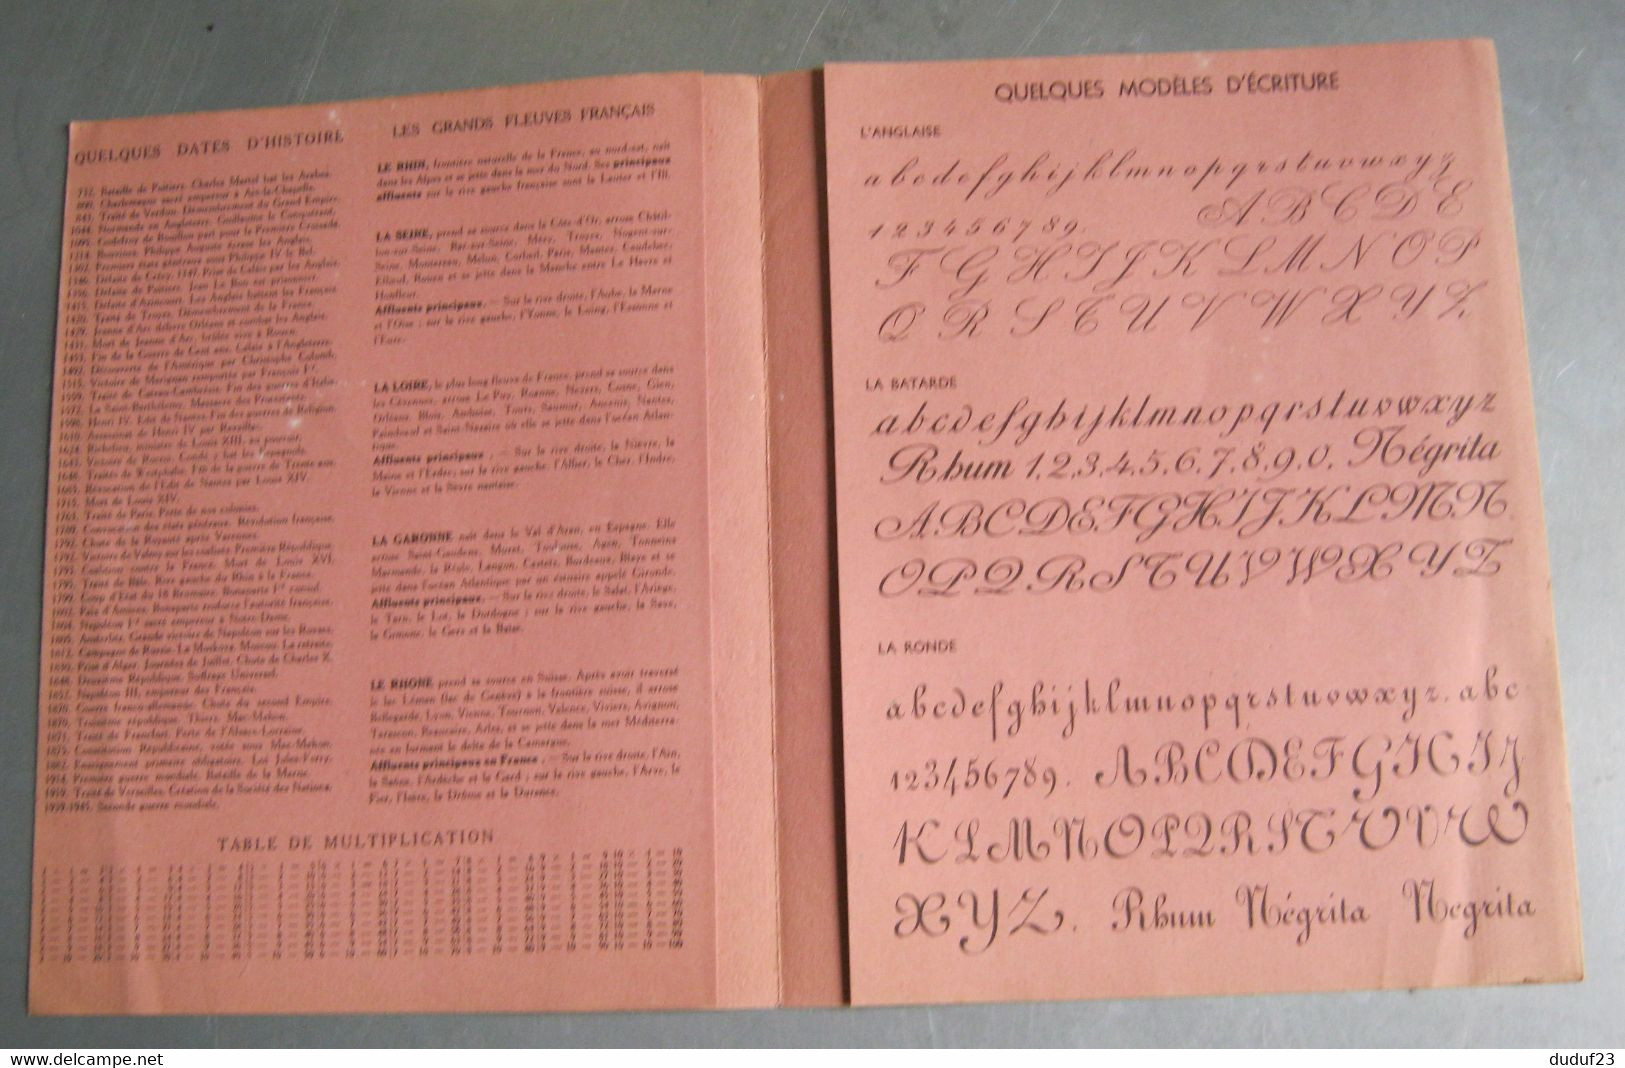 QUELQUES DATES D'HISTOIRE
732. Bataille de Poitiers. Charles Martel bat les Arabes.
800. Charlemagne sacré empereur à Aix-la-Chapelle.
843. Traité de Verdun. Démembrement du Grand Empire.
Normands en Angleterre. Guillaume le Conquérant.
Godefroy de Bouillon part pour la Première Croisade.
Bouvines. Philippe Auguste écrase les Anglais.
Premiers états généraux sous Philippe IV le Bel.
1346. Défaite de Crécy. 1347. Prise de Calais par les Anglais.
1356. Défaite de Poitiers. Jean Le Bon est prisonnier.
1415. Défaite d'Azincourt. Les Anglais battent les Français
1420. Traité de Troyes. Démembrement de la France.
1429. Jeanne d'Arc délivre Orléans et combat les Anglais.
1431. Mort de Jeanne d'Arc, brûlée vive à Rouen.
1453. Fin de la Guerre de Cent ans. Calais à l'Angleterre.
1492. Découverte de l'Amérique par Christophe Colomb.
1515. Victoire de Marignan remportée par François Ier.
1559. Traité de Cateau-Cambrésis. Fin des guerres d'Italie.
1572. La Saint-Barthélemy. Massacre des Protestants.
1598. Henri IV. Edit de Nantes. Fin des guerres de Religion.
1610. Assassinat de Henri IV par Ravaillac.
1624. Richelieu, ministre de Louis XIII, au pouvoir.
1643. Victoire de Rocroi. Condé y bat les Espagnols.
1648. Traités de Westphalie. Fin de la guerre de Trente ans.
1685. Révocation de l'Edit de Nantes par Louis XIV.
1715. Mort de Louis XIV.
1763. Traité de Paris. Perte de nos colonies.
1789. Convocation des états généraux. Révolution française.
1792. Chute de la Royauté après Varennes.
1792. Victoire de Valmy sur les coalisés. Première République.
1793. Coalition contre la France. Mort de Louis XVI.
1795. Traité de Bâle. Rive gauche du Rhin à la France.
1799. Coup d'Etat du 18 Brumaire. Bonaparte Ier consul.
1802. Paix d'Amiens. Bonaparte restaure l'autorité française.
1804. Napoléon Ier sacré empereur à Notre-Dame.
1805. Austerlitz. Grande victoire de Napoléon sur les Russes.
1812. Campagne de Russie. La Moskova. Moscou. La retraite.
1830. Prise d'Alger. Journées de Juillet. Chute de Charles X.
1848. Deuxième République. Suffrage Universel.
1852. Napoléon III, empereur des Français.
1870. Guerre franco-allemande. Chute du second Empire.
1870. Troisième république. Thiers. Mac-Mahon.
1871. Traité de Francfort. Perte de l'Alsace-Lorraine.
1875. Constitution Républicaine, votée sous Mac-Mahon.
1882. Enseignement primaire obligatoire. Loi Jules-Ferry.
1914. Première guerre mondiale. Bataille de la Marne.
1919. Traité de Versailles. Création de la Société des Nations.
1939-1945. Seconde guerre mondiale.
LES GRANDS FLEUVES FRANÇAIS
LE RHIN, frontière naturelle de la France, au nord-est, naît
dans les Alpes et se jette dans la mer du Nord. Ses principaux
affluents sur la rive gauche française sont la Lauter et l'Ill.
LA SEINE, prend sa source dans la Côte-d'Or, arrose Châtil-
lon-sur-Seine, Bar-sur-Seine, Méry, Troyes, Nogent-sur-
Seine, Montereau, Melun, Corbeil, Paris, Mantes, Caudebec,
Elbeuf, Rouen et se jette dans la Manche entre Le Havre et
Honfleur.
Affluents principaux. — Sur la rive droite, l'Aube, la Marne
et l'Oise ; sur la rive gauche, l'Yonne, le Loing, l'Essonne et
l'Eure.
LA LOIRE, le plus long fleuve de France, prend sa source dans
les Cévennes, arrose Le Puy, Roanne, Nevers, Cosne, Gien,
Orléans, Blois, Amboise, Tours, Saumur, Ancenis, Nantes,
Paimbœuf et Saint-Nazaire où elle se jette dans l'océan Atlan-
tique.
Affluents principaux. — Sur la rive droite, la Nièvre, la
Maine et l'Erdre; sur la rive gauche, l'Allier, le Cher, l'Indre,
la Vienne et la Sèvre nantaise.
LA GARONNE naît dans le Val d'Aran, en Espagne. Elle
arrose Saint-Gaudens, Muret, Toulouse, Agen, Tonneins
Marmande, la Réole, Langon, Castets, Bordeaux, Blaye et se
jette dans l'océan Atlantique par un estuaire appelé Gironde.
Affluents principaux. — Sur la rive droite, le Salat, l'Ariège,
le Tarn, le Lot, la Dordogne ; sur la rive gauche, la Save,
la Gimone, le Gers et la Baïse.
LE RHONE prend sa source en Suisse. Après avoir traversé
le lac Léman (lac de Genève) à la frontière suisse, il arrose
Bellegarde, Lyon, Vienne, Tournon, Valence, Viviers, Avignon,
Tarascon, Beaucaire, Arles, et se jette dans la mer Méditerra-
née en formant le delta de la Camargue.
Affluents principaux en France. — Sur la rive droite, l'Ain,
la Saône, l'Ardèche et le Gard ; sur la rive gauche, l'Arve, le
Fier, l'Isère, la Drôme et la Durance.
TABLE DE MULTIPLICATION
QUELQUES MODÈLES D'ÉCRITURE
L'ANGLAISE
a b c d e f g h i j k l m n o p q r s t u v w x y z
1 2 3 4 5 6 7 8 9. A B C D E
F G H I J K L M N O P
Q R S T U V W X Y Z
LA BATARDE
a b c d e f g h i j k l m n o p q r s t u v w x y z
Rhum 1.2.3.4.5.6.7.8.9.0. Négrita
A B C D E F G H I J K L M N
O P Q R S T U V W X Y Z
LA RONDE
a b c d e f g h i j k l m n o p q r s t u v w x y z. a b c
1 2 3 4 5 6 7 8 9. A B C D E F G H I J
K L M N O P Q R S T U V W
X Y Z. Rhum Négrita Negrita
www.delcampe.net
duduf23